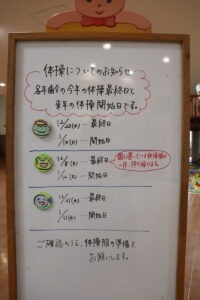 体操についてのお知らせ
各年齢の今年の体操最終日と
来年の体操開始日です。
12/20(水)… 最終日
1/10(水)… 開始日
… 最終日
… 開始日
一度、持ち帰ります。
12/21(木)… 最終日
1/11(木)… 開始日
ご確認のうえ、体操服の準備を
お願いします。